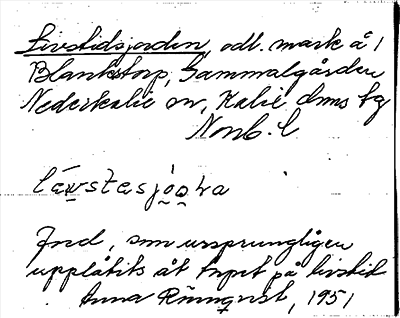 Livstidsjorden, odl. mark å 1
Blankstorp, Gammalgården
Nederkalix sn, Kalix dms tg
Norrb. l
Jord, som ursprungligen
upplåtits åt torpet på livstid
Anna Rönnqvist, 1951